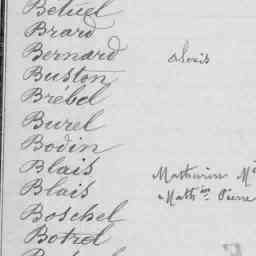 Betuel
Brard
Bernard Alexis
Buston
Brébel
Burel
Bodin
Blais Mathurin
Blais Math in Pierre
Boschel
Botrel